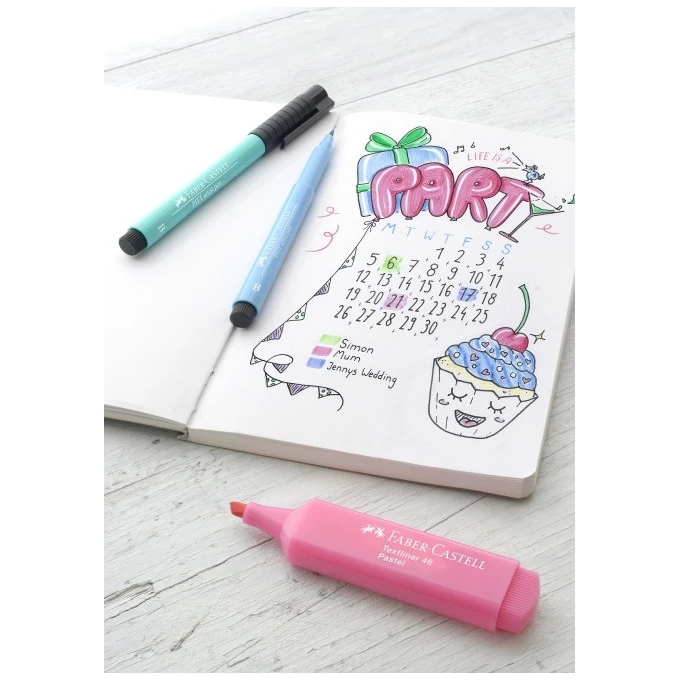 FABER-CASTELL
PITT artist pen
B
B
LIFE IS A
PARTY
M T W T F S S
1 2 3 4
5 6 7 8 9 10 11
12 13 14 15 16 17 18
19 20 21 22 23 24 25
26 27 28 29 30
Simon
Mum
Jennys Wedding
FABER-CASTELL
Textliner 46
Pastel